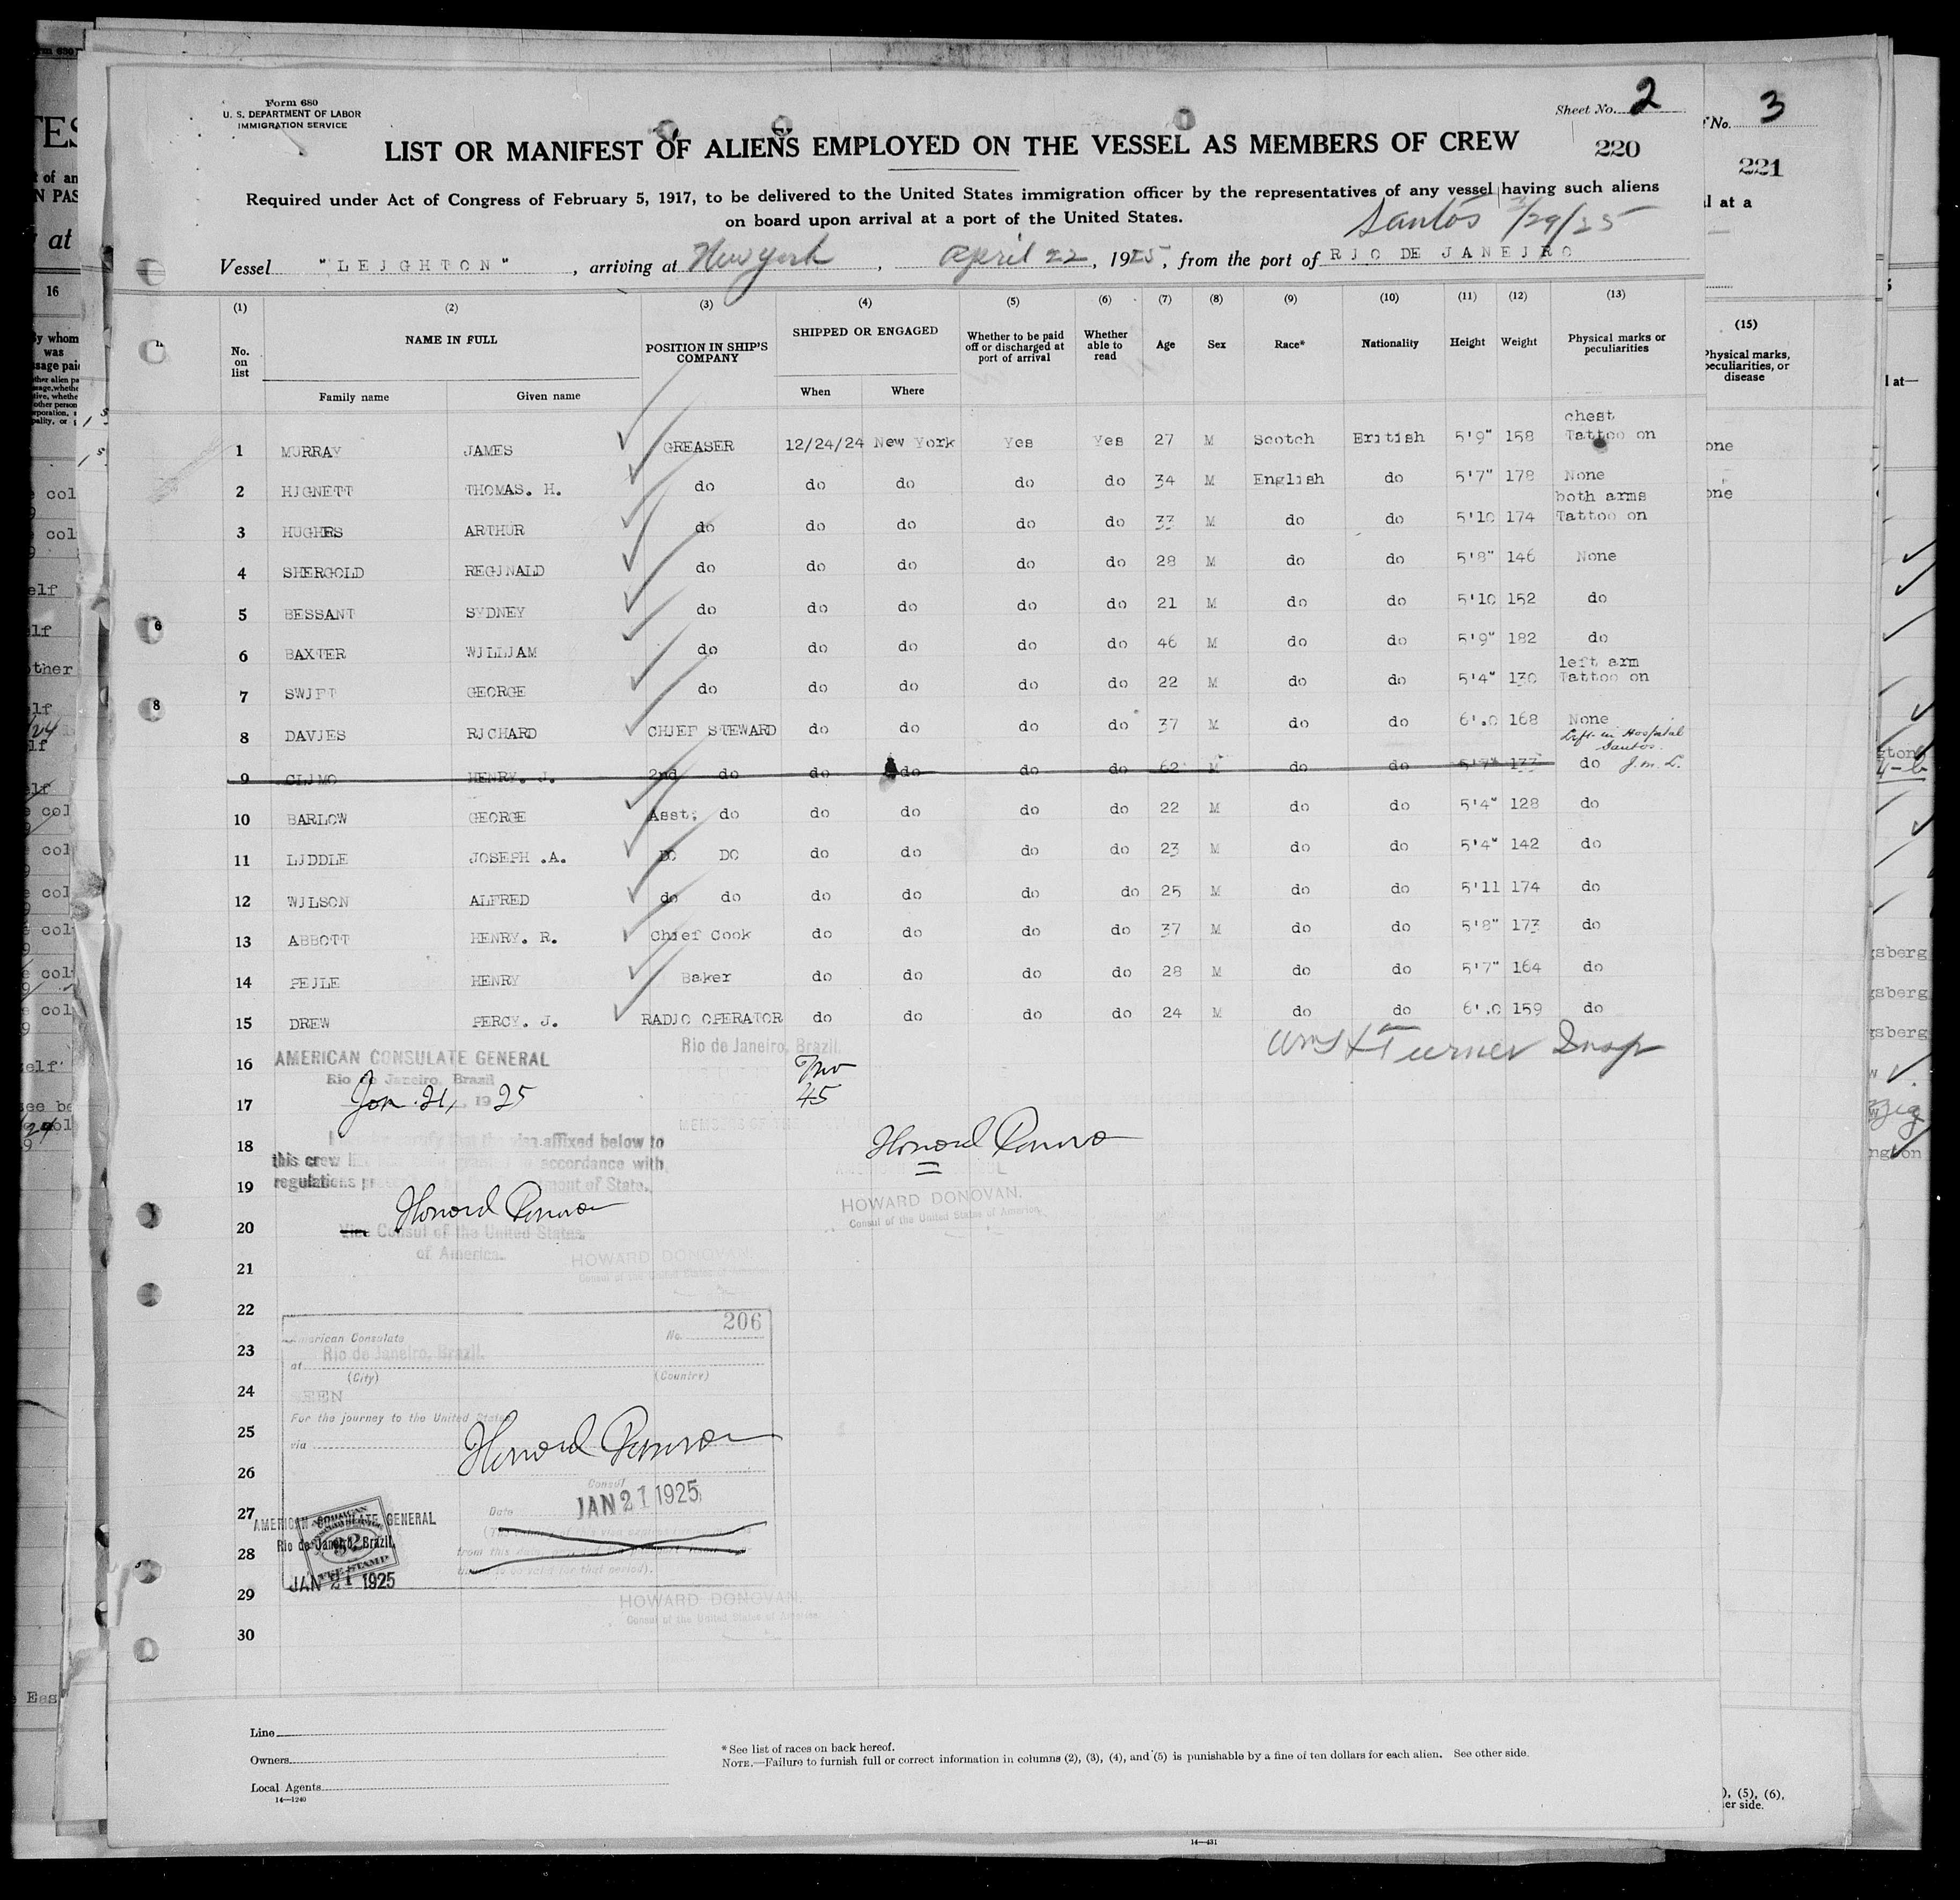 Form 680
U. S. DEPARTMENT OF LABOR
IMMIGRATION SERVICE
Sheet No. 2
220
LIST OR MANIFEST OF ALIENS EMPLOYED ON THE VESSEL AS MEMBERS OF CREW
Required under Act of Congress of February 5, 1917, to be delivered to the United States immigration officer by the representatives of any vessel having such aliens
on board upon arrival at a port of the United States.
Santos 3/29/25
Vessel "LEJGHTON", arriving at New York, April 22, 1925, from the port of RJO DE JANEJRO
(1) (2) (3) (4) (5) (6) (7) (8) (9) (10) (11) (12) (13)
No. on list NAME IN FULL POSITION IN SHIP'S COMPANY SHIPPED OR ENGAGED Whether to be paid off or discharged at port of arrival Whether able to read Age Sex Race* Nationality Height Weight Physical marks or peculiarities
Family name Given name When Where
chest
1 MURRAY JAMES GREASER 12/24/24 New York Yes Yes 27 M Scotch British 5'9" 158 Tattoo on
2 HJGNETT THOMAS. H. do do do do do 34 M English do 5'7" 178 None
both arms
3 HUGHES ARTHUR do do do do do 33 M do do 5'10 174 Tattoo on
4 SHERGOLD REGJNALD do do do do do 28 M do do 5'8" 146 None
5 BESSANT SYDNEY do do do do do 21 M do do 5'10 152 do
6 BAXTER WJLLJAM do do do do do 46 M do do 5'9" 182 do
left arm
7 SWJFT GEORGE do do do do do 22 M do do 5'4" 130 Tattoo on
8 DAVJES RJCHARD CHJEF STEWARD do do do do 37 M do do 6'.0 168 None
Left in Hospital
Santos.
9 CLJMO HENRY. J. 2nd do do do do do 62 M do do 5'7" 133 do J.M.L.
10 BARLOW GEORGE Asst; do do do do do 22 M do do 5'4" 128 do
11 LJDDLE JOSEPH .A. DO DO do do do do 23 M do do 5'4" 142 do
12 WJLSON ALFRED do do do do do do 25 M do do 5'11 174 do
13 ABBOTT HENRY. R. Chief Cook do do do do 37 M do do 5'8" 173 do
14 PEJLE HENRY Baker do do do do 28 M do do 5'7" 164 do
15 DREW PERCY. J. RADJO OPERATOR do do do do 24 M do do 6'.0 159 do
16
17
18
19
20
21
22
23
24
25
26
27
28
29
30
AMERICAN CONSULATE GENERAL
Rio de Janeiro, Brazil
Jan. 21, 1925
Rio de Janeiro, Brazil.
45
Turner Insp
visa affixed below to
this crew accordance with
regulations of State.
Howard Donovan
Vice Consul of the United States
of America.
Howard Donovan
HOWARD DONOVAN.
Consul of the United States of America.
HOWARD DONOVAN.
Consul of the United States of America.
American Consulate No. 206
at Rio de Janeiro, Brazil.
(City) (Country)
SEEN
For the journey to the United States
via
Howard Donovan
Consul
Date JAN 21 1925
AMERICAN CONSULATE GENERAL
Rio de Janeiro, Brazil.
JAN 21 1925
HOWARD DONOVAN.
Consul of the United States of America
Line
Owners
Local Agents
14—1240
* See list of races on back hereof.
NOTE.—Failure to furnish full or correct information in columns (2), (3), (4), and (5) is punishable by a fine of ten dollars for each alien. See other side.
No. 3
221
(15)
Physical marks, peculiarities, or disease
14—431